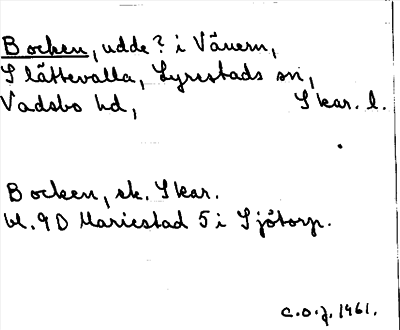 Bocken, udde? i Vänern,
Slättevalla, Lyrestads sn,
Vadsbo hd, Skar. l.
Bocken, sk. Skar.
bl. 9D Mariestad 5 i Sjötorp.
C.O.J. 1961.